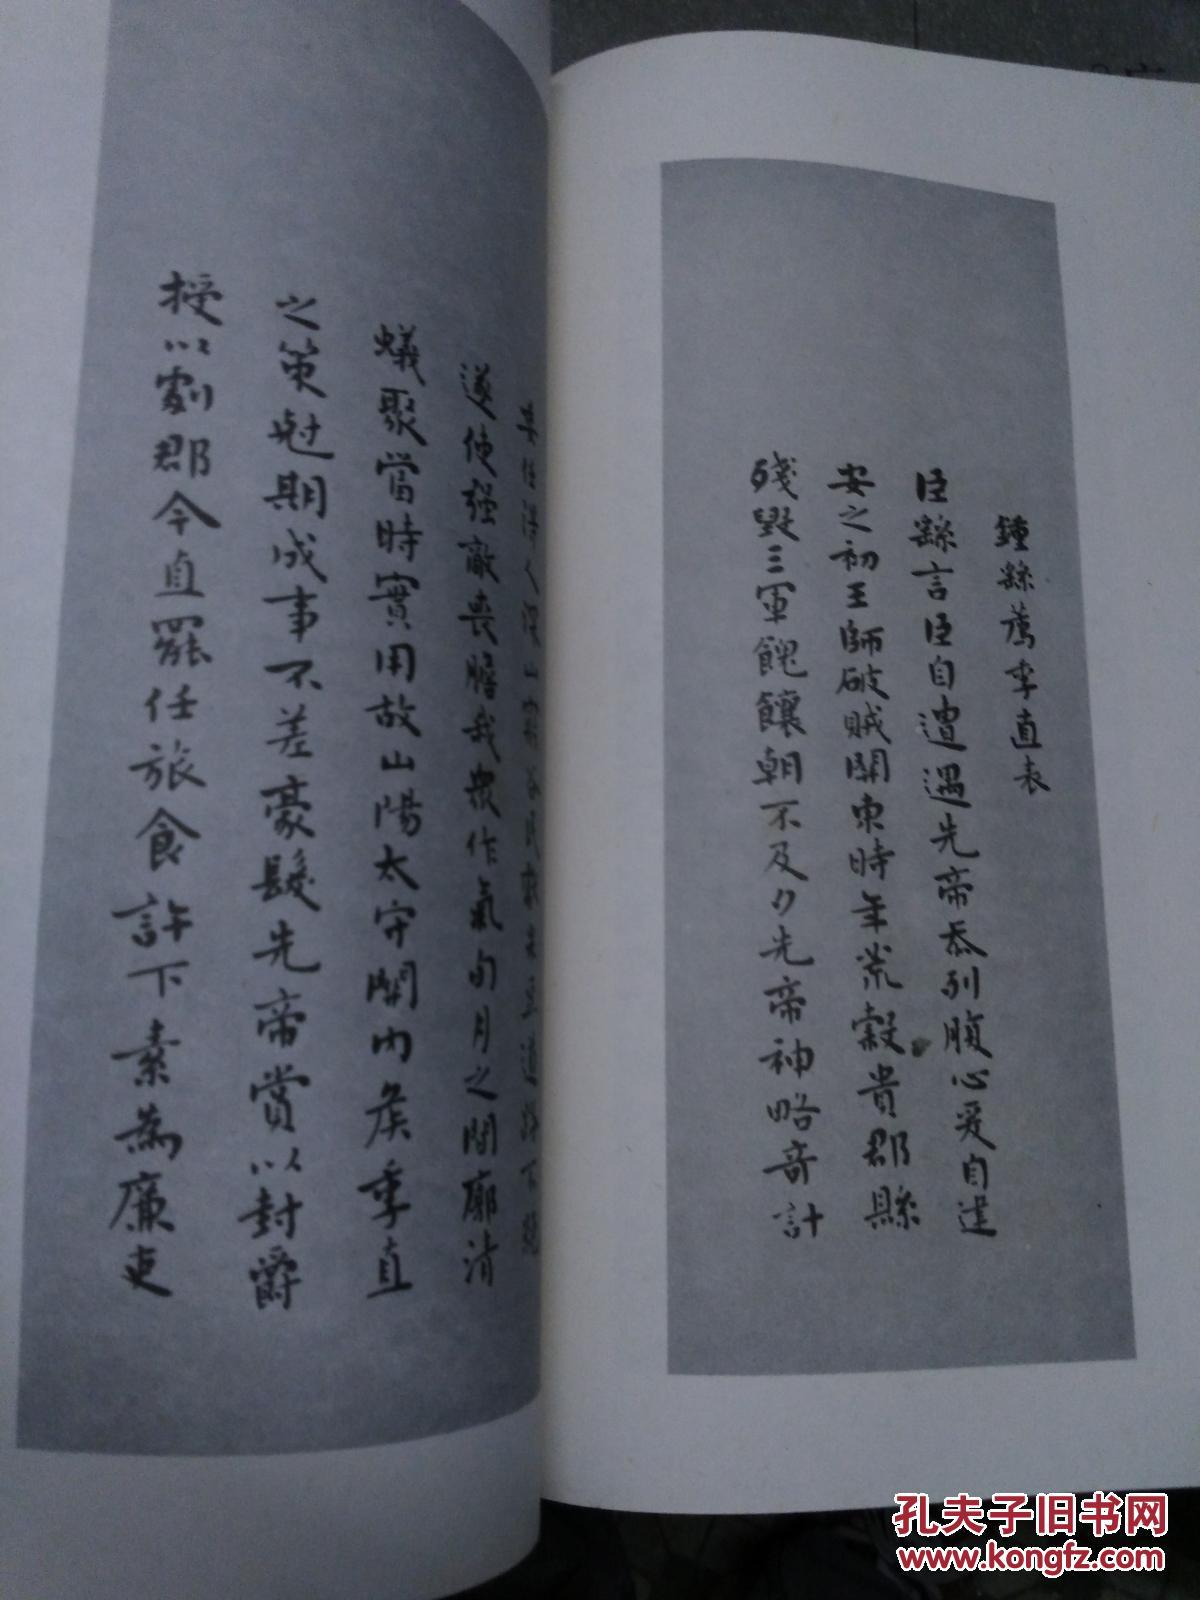 鍾繇薦季直表
臣繇言臣自遭遇先帝忝列腹心爰自建
安之初王師破賊關東時年荒穀貴郡縣
殘毀三軍餽饟朝不及夕先帝神略奇計
委任得人深山窮谷民獻米豆道路不絕
遂使强敵喪膽我衆作氣旬月之間廓清
蟻聚當時實用故山陽太守關內侯季直
之策尅期成事不差豪髮先帝賞以封爵
授以劇郡今直罷任旅食許下素為廉吏
孔夫子旧书网
www.kongfz.com